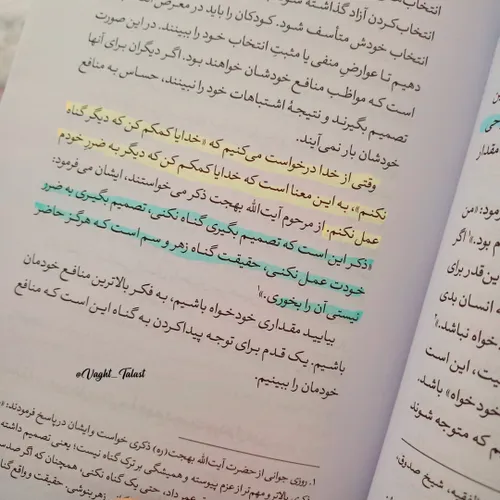 انتخاب‌کردن آزاد گذاشته
انتخاب خودش متأسف شود. کودکان را باید در معرض
دهیم تا عوارضِ منفی یا مثبتِ انتخاب خود را ببینند. در این صورت
است که مواظب منافع خودشان خواهند بود. اگر دیگران برای آنها
تصمیم بگیرند و نتیجهٔ اشتباهات خود را نبینند، حساس به منافع
خودشان بار نمی‌آیند.
وقتی از خدا درخواست می‌کنیم که «خدایا کمکم کن که دیگر گناه
نکنم»، به این معنا است که خدایا کمکم کن که دیگر به ضرر خودم
عمل نکنم. از مرحوم آیت‌الله بهجت ذکر می‌خواستند، ایشان می‌فرمود:
«ذکر این است که تصمیم بگیری گناه نکنی، تصمیم بگیری به ضرر
خودت عمل نکنی، حقیقت گناه زهر و سم است که هرگز حاضر
نیستی آن را بخوری.»۱
بیایید مقداری خودخواه باشیم، به فکر بالاترین منافع خودمان
باشیم. یک قدم برای توجه پیداکردن به گناه این است که منافع
خودمان را ببینیم.
@Vaght_Talast
۱. روزی جوانی از حضرت آیت‌الله بهجت(ره) ذکری خواست و ایشان در پاسخ فرمودند:
ذکری بالاتر و مهم‌تر از عزم پیوسته و همیشگی بر ترک گناه نیست؛ یعنی تصمیم داشته
عمر داد، حتی یک گناه نکنی، همچنان که اگر صد
زهر بنوشی. حقیقت و واقع
حی
مقدار
مود: «من
م بود.» اگر
ین قدر برای
ه انسان بدی
خواه نباشد.»
یت، این است
خودخواه» باشد.
م که متوجه شوند
لفقیه، شیخ صدوق،